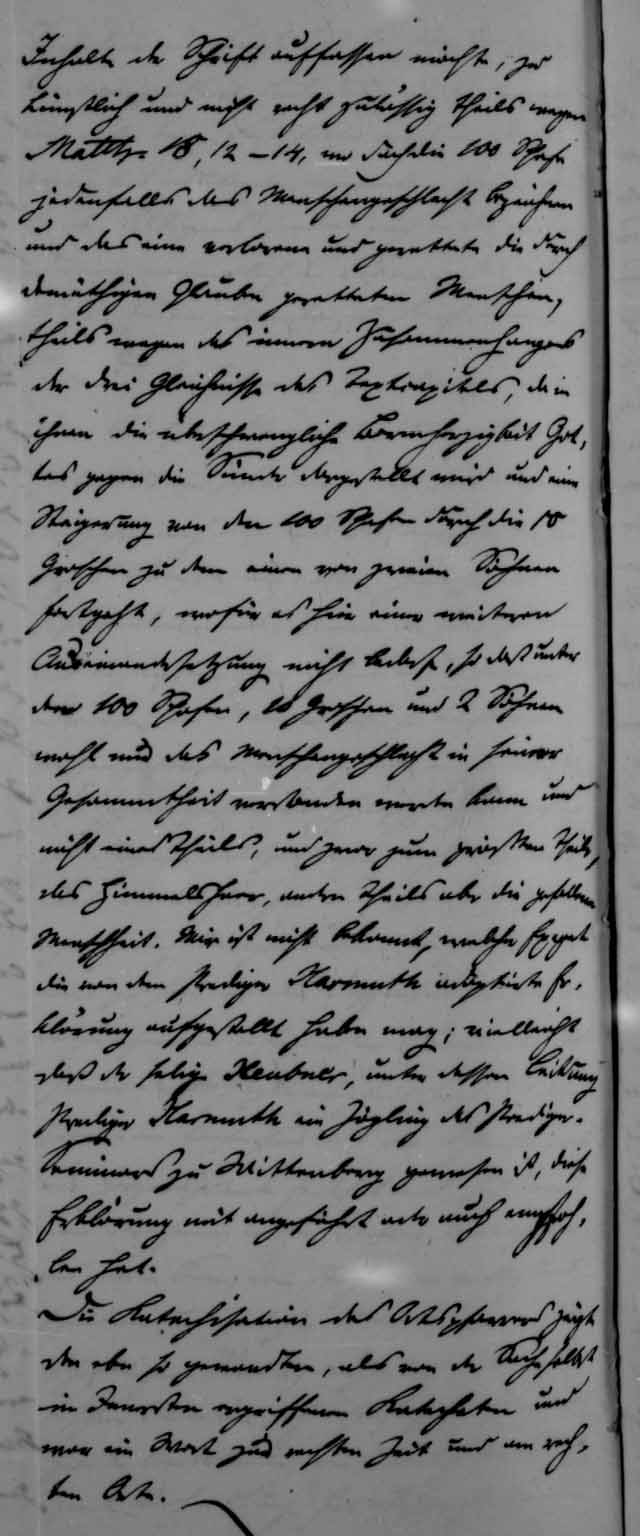 Inhalte der Schrift auffassen möchte, zu
künstlich und nicht recht zulässig theils wegen
Matth. 18, 12–14, wo doch die 100 Schafe
jedenfalls das Menschengeschlecht bezeichnen
und das eine verlorene und gerettete die durch
demüthigen Glauben geretteten Menschen,
theils wegen des innern Zusammenhanges
der drei Gleichnisse des Textcapitels, da in
ihnen die überschwengliche Barmherzigkeit Got-
tes gegen die Sünder dargestellt wird und eine
Steigerung von den 100 Schafen durch die 10
Groschen zu dem einen von zweien Söhnen
fortgeht, wofür es hier einer weiteren
Auseinandersetzung nicht bedarf, so daß unter
den 100 Schafen, 10 Groschen und 2 Söhnen
wohl nur das Menschengeschlecht in seiner
Gesammtheit verstanden werden kann und
nicht eines Theils, und zwar zum größten Theile,
das Himmelsheer, andern Theils aber die gefallene
Menschheit. Mir ist nicht bekannt, welcher Exeget
die von dem Prediger Harmuth adoptirte Er-
klärung aufgestellt haben mag; vielleicht
daß der selige Heubner, unter dessen Leitung
Prediger Harmuth ein Zögling des Prediger-
Seminars zu Wittenberg gewesen ist, diese
Erklärung mit angeführt oder auch empfoh-
len hat.
Die Katechisation des Ortspfarrers zeigte
den eben so gewandten, als von der Sache selbst
im Innersten ergriffenen Katecheten und
war ein Wort zur rechten Zeit und am rech-
ten Orte.